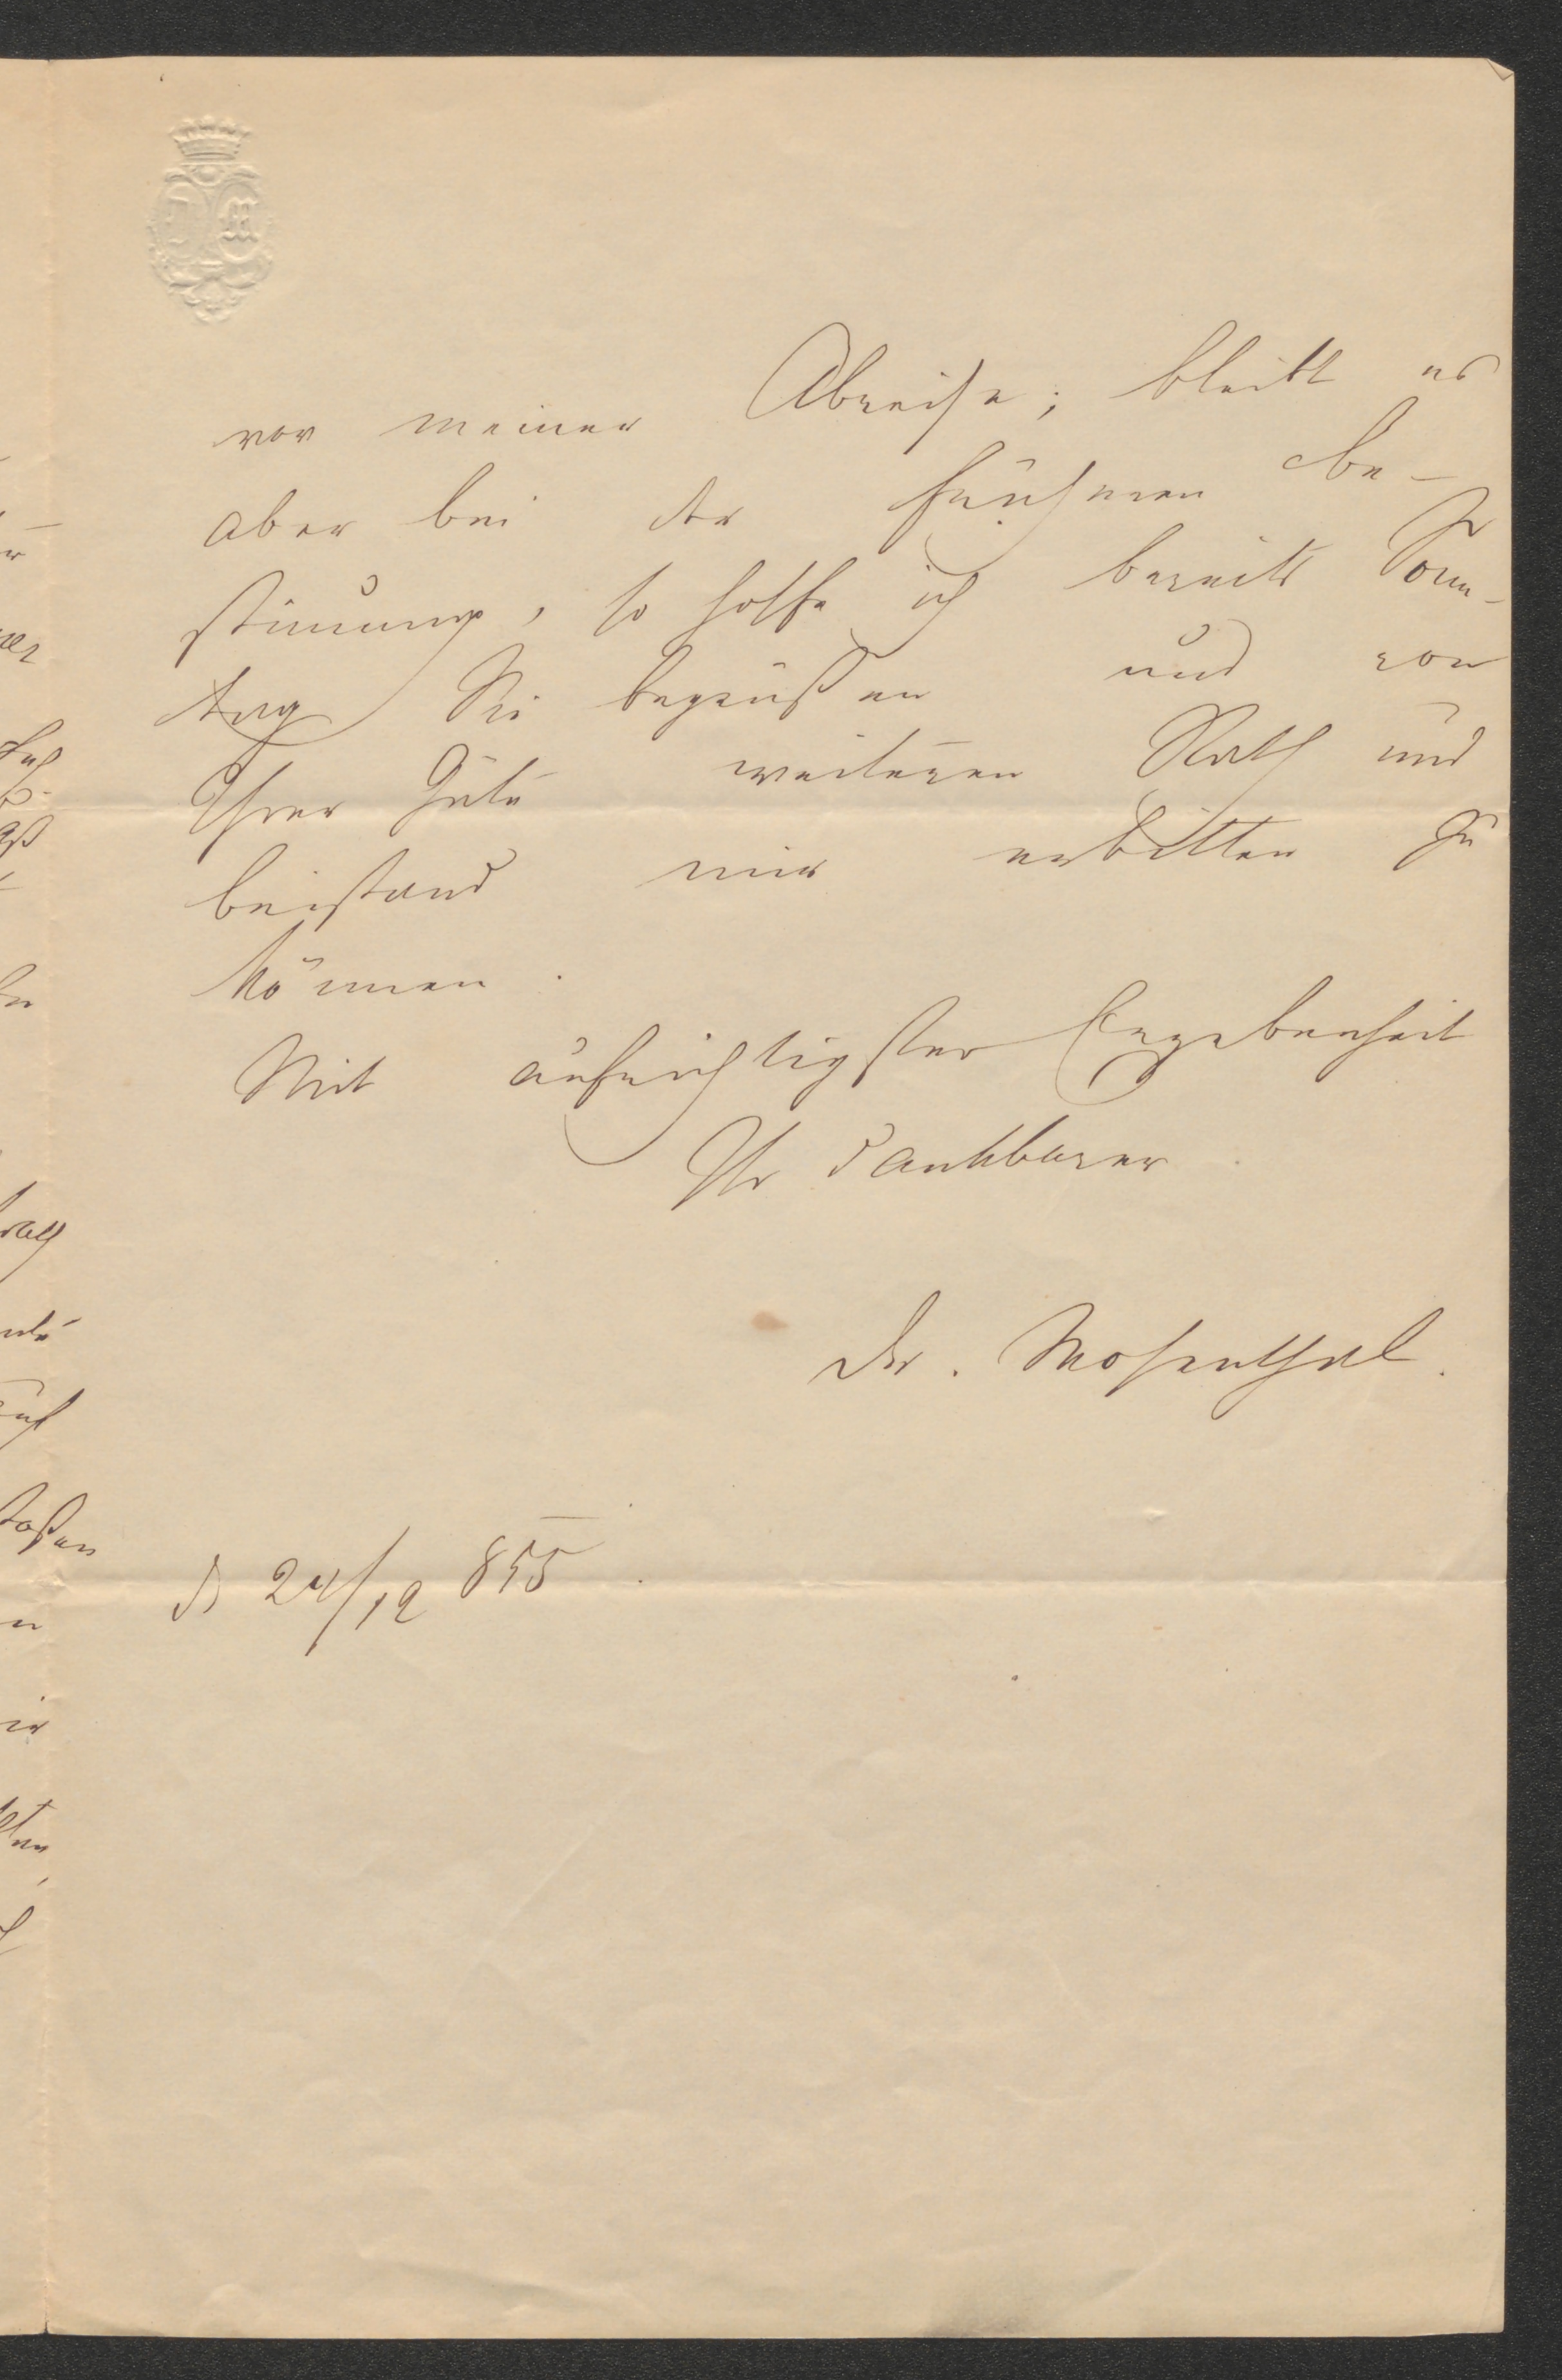 vor meiner Abreise; bleibt es
aber bei der früheren Be-
stimmung, so hoffe ich bereits Sonn-
tag Sie begrüßen und von
Ihrer Güte weiteren Rath und
Beistand mir erbitten zu
können.
Mit aufrichtigster Ergebenheit
Ihr dankbarer
Dr. Mosenthal.
24/12 855.